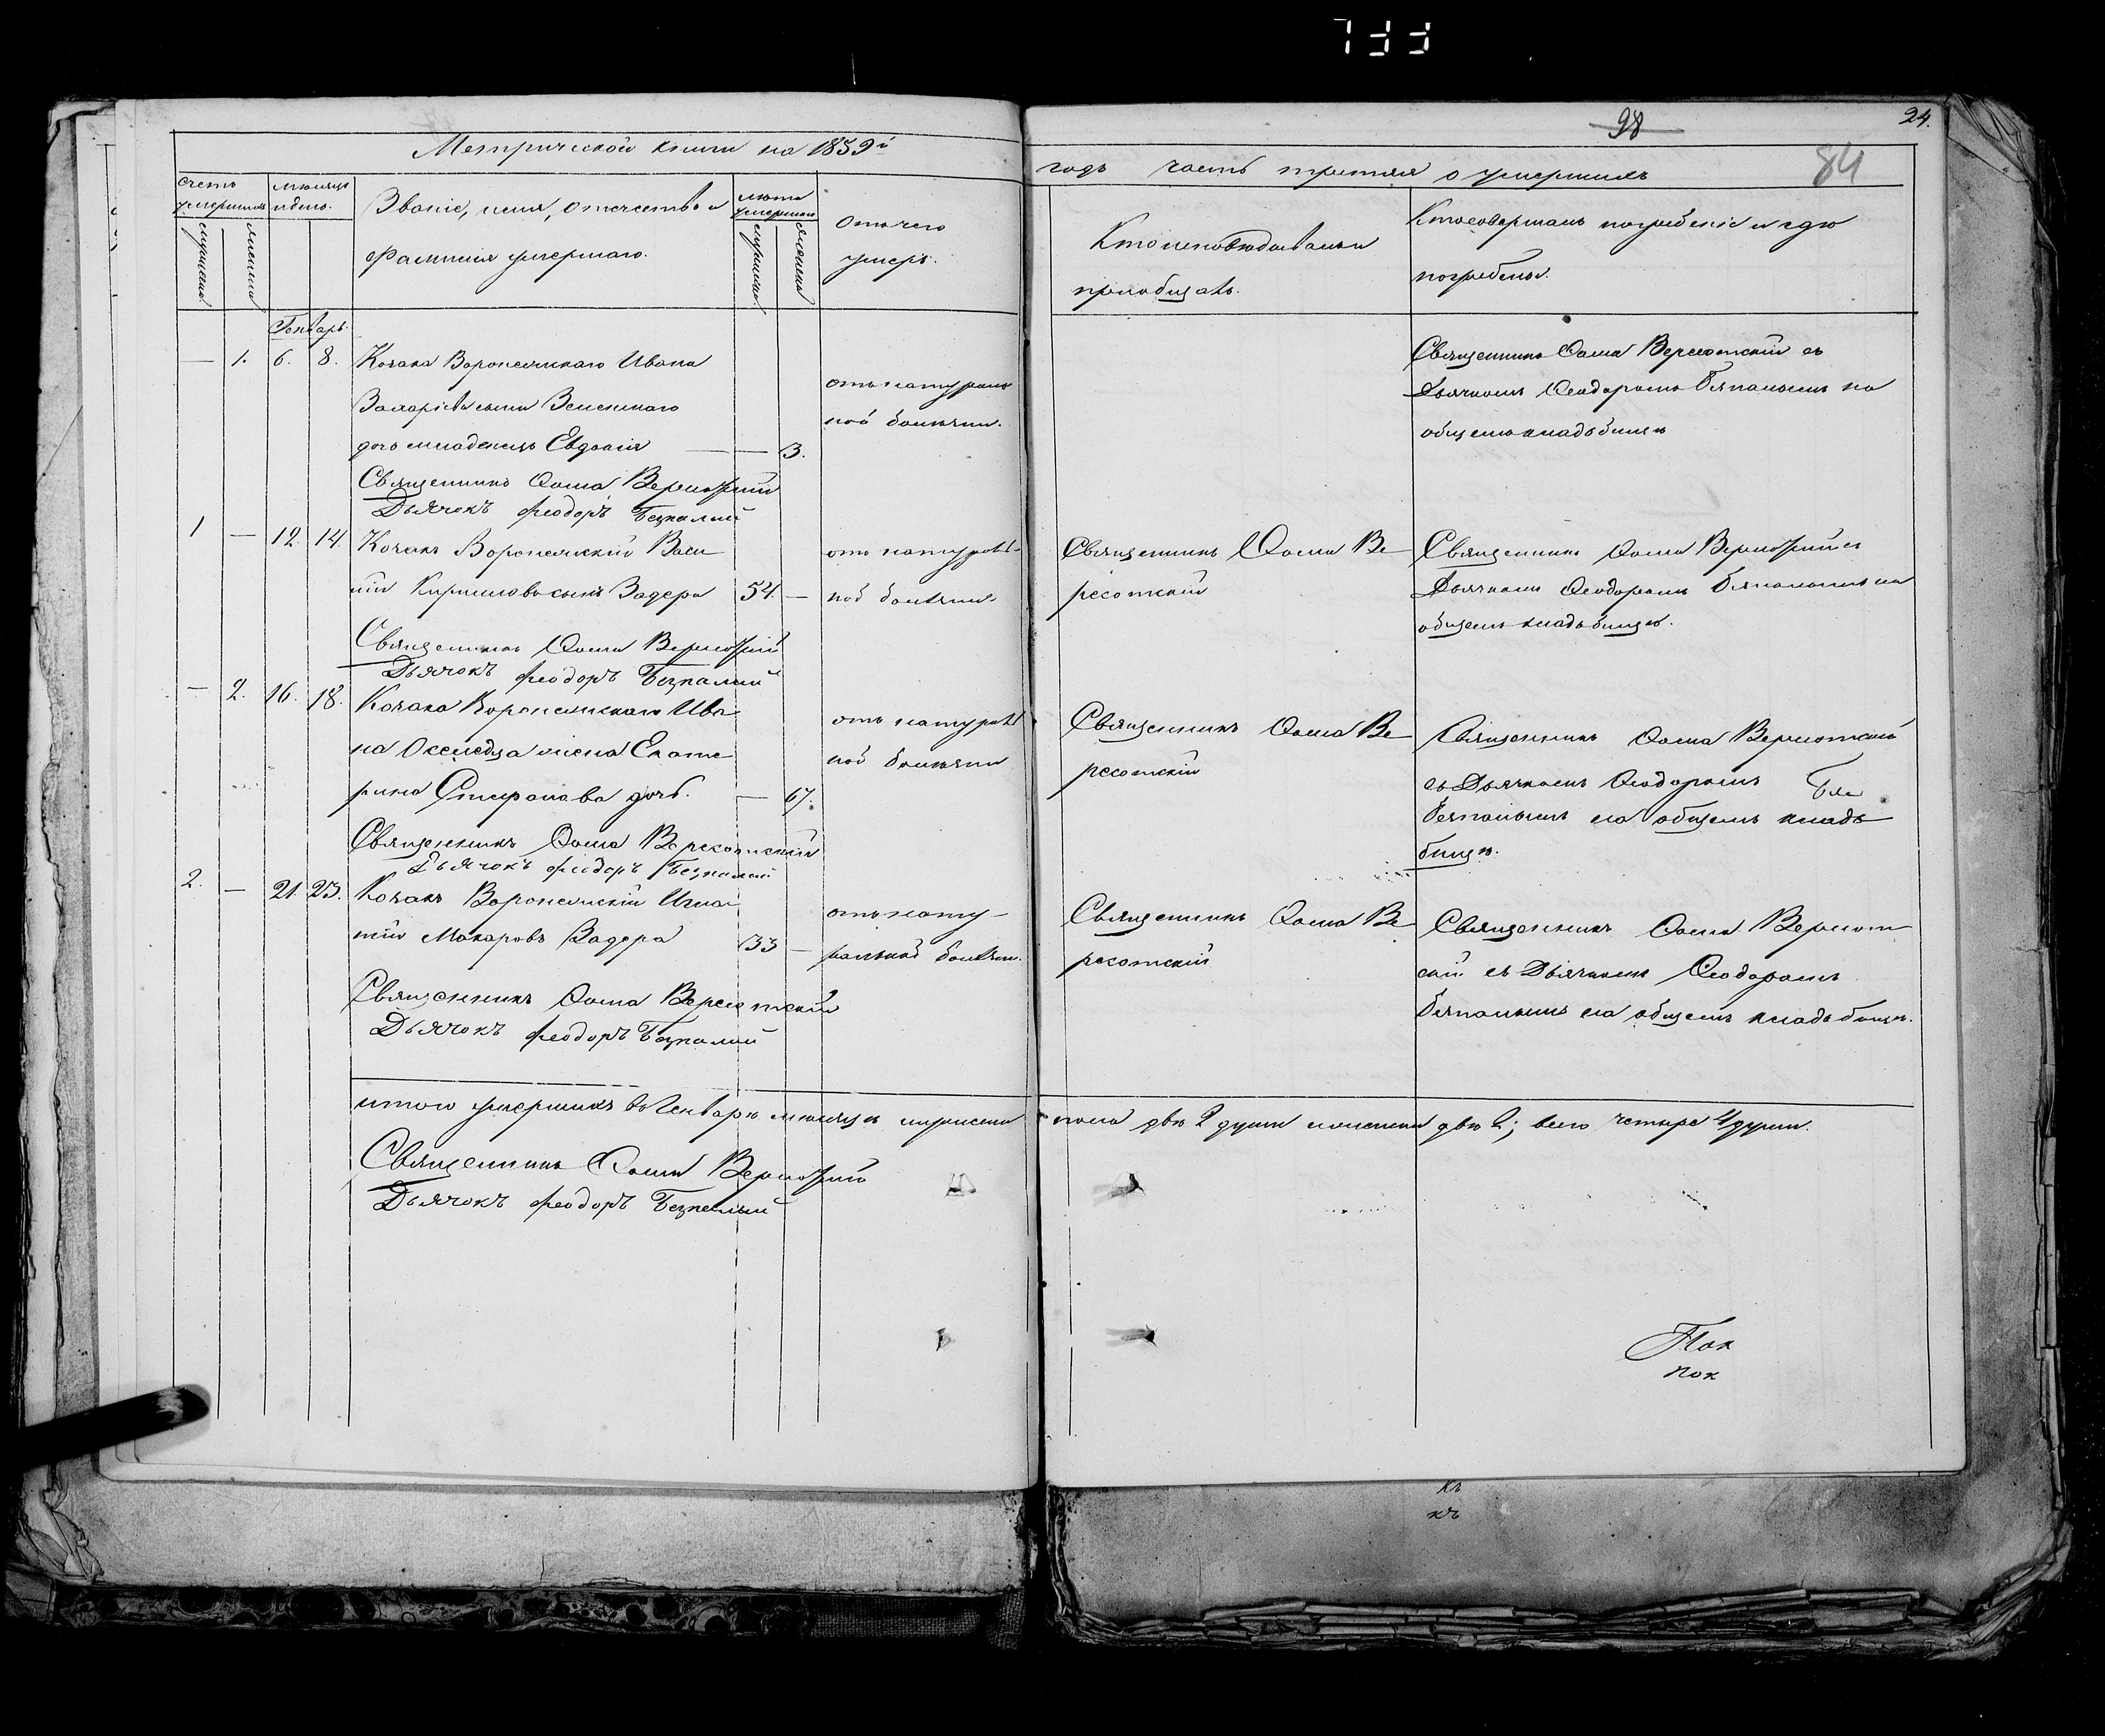 98
24.
84
Метрической книги на 1859й
годъ часть третяя о умершихъ
Счетъ умершихъ
мужеска
женска
месяцъ и день.
Званіе, имя, отчество и
фамилія умершаго.
лета умершаго
мужеска
женска
Отъ чего
умеръ.
Кто исповедывалъ и
приобщалъ.
Кто совершалъ погребеніе и где
погребены.
Генварь
— 1. 6. 8. Козака Воронежскаго Ивана
Захаріева сына Зеленскаго
дочь младенецъ Евдокія — — 3.
отъ натураль
ной болезни.
Священникъ Ѳома Вересотскій съ
Дьячкомъ Ѳеодоромъ Безпалымъ на
общемъ кладбище
Священникъ Ѳома Вересотскій
Дьячокъ Феодоръ Безпалий
1 — 12. 14. Козакъ Воронежскій Васи
лій Кирилловъ сынъ Задера 54. —
отъ натураль
ной болезни.
Священникъ Ѳома Ве
ресотскій
Священникъ Ѳома Вересотскій съ
Дьячкомъ Ѳеодоромъ Безпалымъ на
общемъ кладбище.
Священникъ Ѳома Вересотскій
Дьячокъ Феодоръ Безпалий
— 2. 16. 18. Козака Воронежскаго Ива
на Оселедца жена Екате
рина Стефанова дочь. — 67.
отъ натураль
ной болезни
Священникъ Ѳома Ве
ресотскій
Священникъ Ѳома Вересотскій
съ Дьячкомъ Ѳеодоромъ
Безпалымъ на общемъ клад
бище.
Священникъ Ѳома Вересотскій
Дьячокъ Феодоръ Безпалий
2. — 21. 23. Козакъ Воронежскій Игна
тій Макаровъ Задера 33 —
отъ нату-
ральной болезни.
Священникъ Ѳома Ве
ресотскій
Священникъ Ѳома Вересот
скій съ Дьячкомъ Ѳеодоромъ
Безпалымъ на общемъ кладбище.
Священникъ Ѳома Вересотскій
Дьячокъ Феодоръ Безпалий
итого умершихъ въ Генваре месяце мужеска пола две 2 души женска две 2; всего четыре 4 души.
Священникъ Ѳома Вересотскій
Дьячокъ Феодоръ Безпалый
Пок
пок
къ
къ